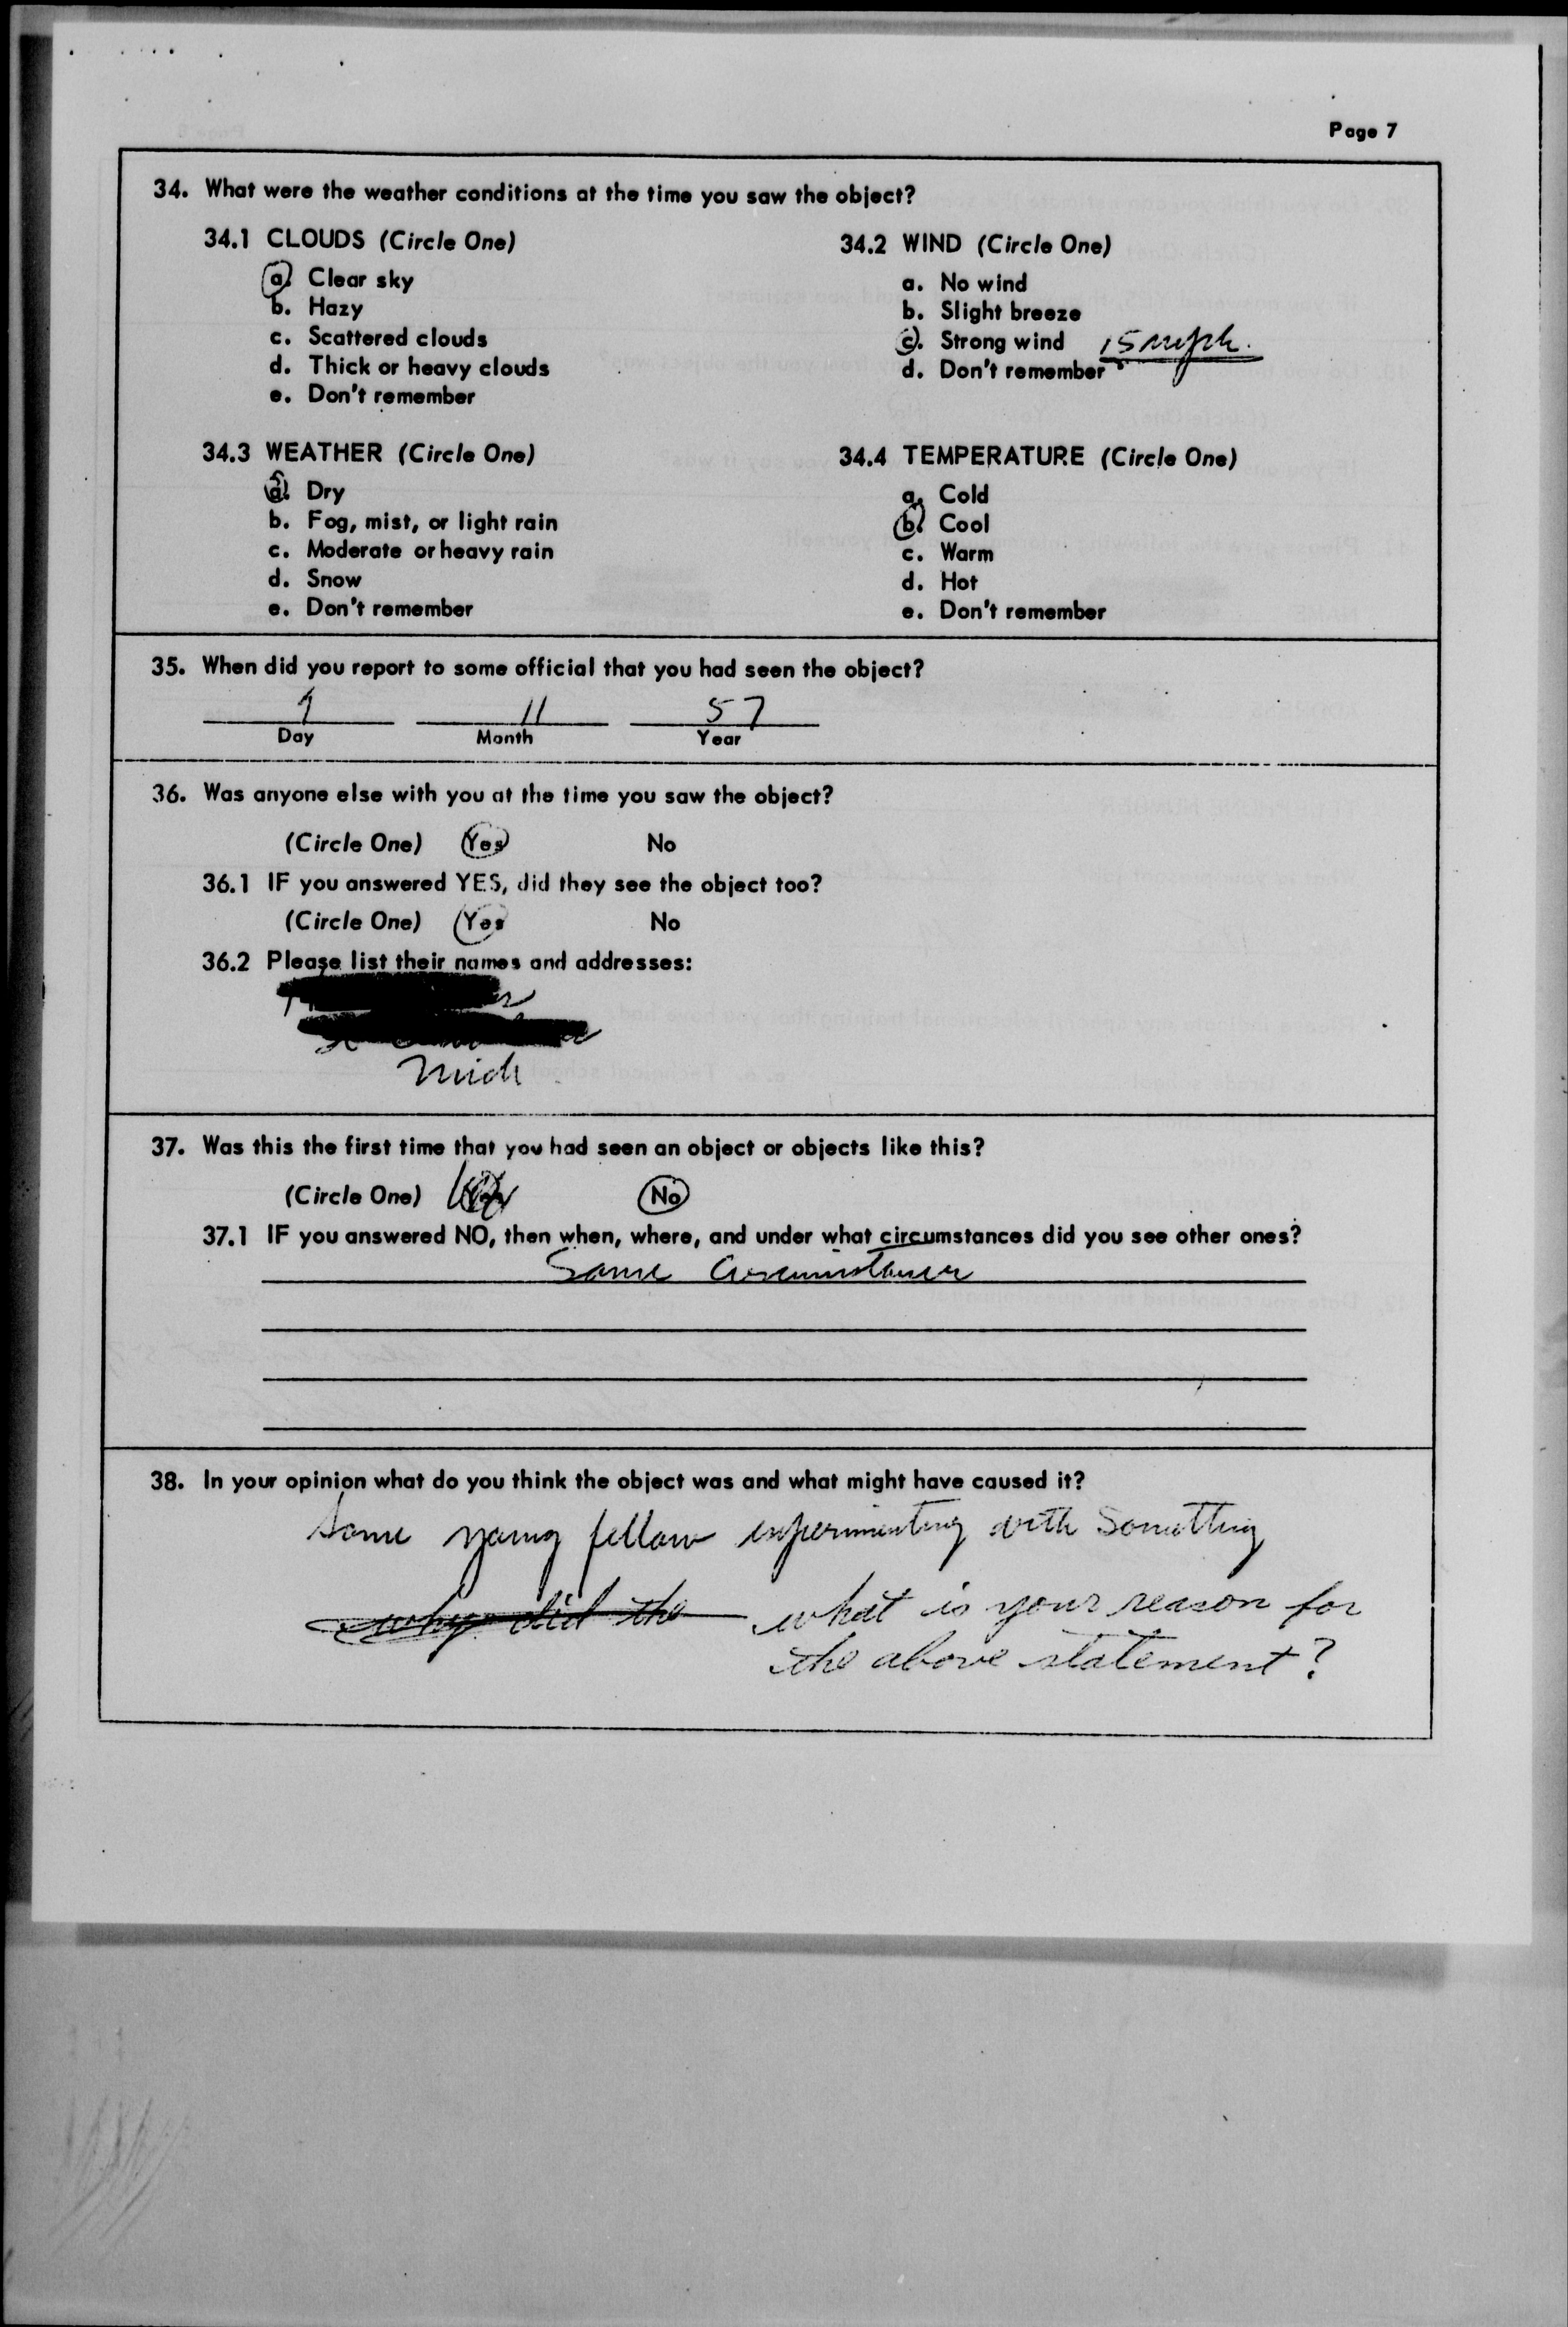 Page 7
34. What were the weather conditions at the time you saw the object?
34.1 CLOUDS (Circle One)
a. Clear sky
b. Hazy
c. Scattered clouds
d. Thick or heavy clouds
e. Don't remember
34.2 WIND (Circle One)
a. No wind
b. Slight breeze
c. Strong wind 15 mph.
d. Don't remember
34.3 WEATHER (Circle One)
a. Dry
b. Fog, mist, or light rain
c. Moderate or heavy rain
d. Snow
e. Don't remember
34.4 TEMPERATURE (Circle One)
a. Cold
b. Cool
c. Warm
d. Hot
e. Don't remember
35. When did you report to some official that you had seen the object?
11 57
Day Month Year
36. Was anyone else with you at the time you saw the object?
(Circle One) Yes No
36.1 IF you answered YES, did they see the object too?
(Circle One) Yes No
36.2 Please list their names and addresses:
Mich
37. Was this the first time that you had seen an object or objects like this?
(Circle One) Yes No
37.1 IF you answered NO, then when, where, and under what circumstances did you see other ones?
Same
38. In your opinion what do you think the object was and what might have caused it?
Some young fellow experimenting with Something
why did the what is your reason for
the above statement?